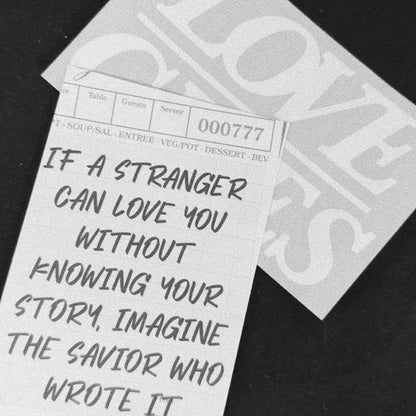 LOVE
Table Guests Server 000777
SOUP/SAL - ENTREE - VEG/POT - DESSERT - BEV
IF A STRANGER
CAN LOVE YOU
WITHOUT
KNOWING YOUR
STORY, IMAGINE
THE SAVIOR WHO
WROTE IT